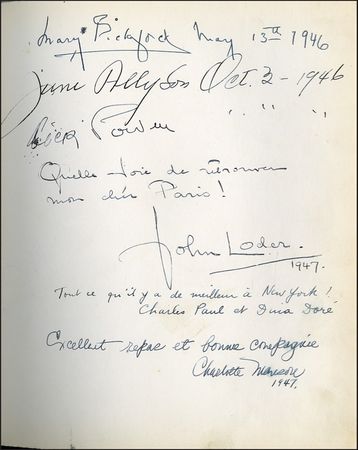 Mary Pickford May 13th 1946
June Allyson Oct. 2 - 1946
Dick Powell " " "
Quelle joie de retrouver
mon cher Paris!
John Loder.
1947.
Tout ce qu'il y a de meilleur à New York!
Charles Paul et Dina Doré
Excellent repas et bonne compagnie
Charlotte
1947.